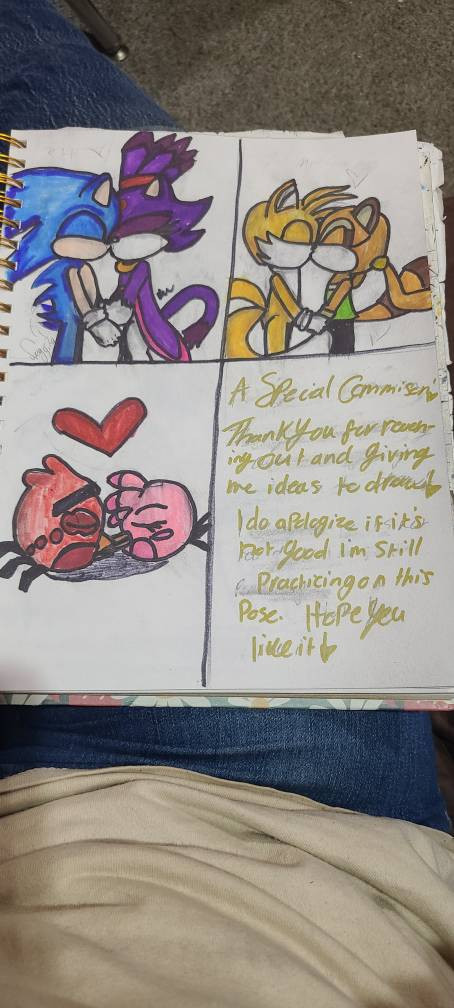 A Special Commisen
Thank You for reven-
ing out and giving
me ideas to draw
I do aPologize if it's
not good Im still
Practicing on this
Pose. HoPe You
like it